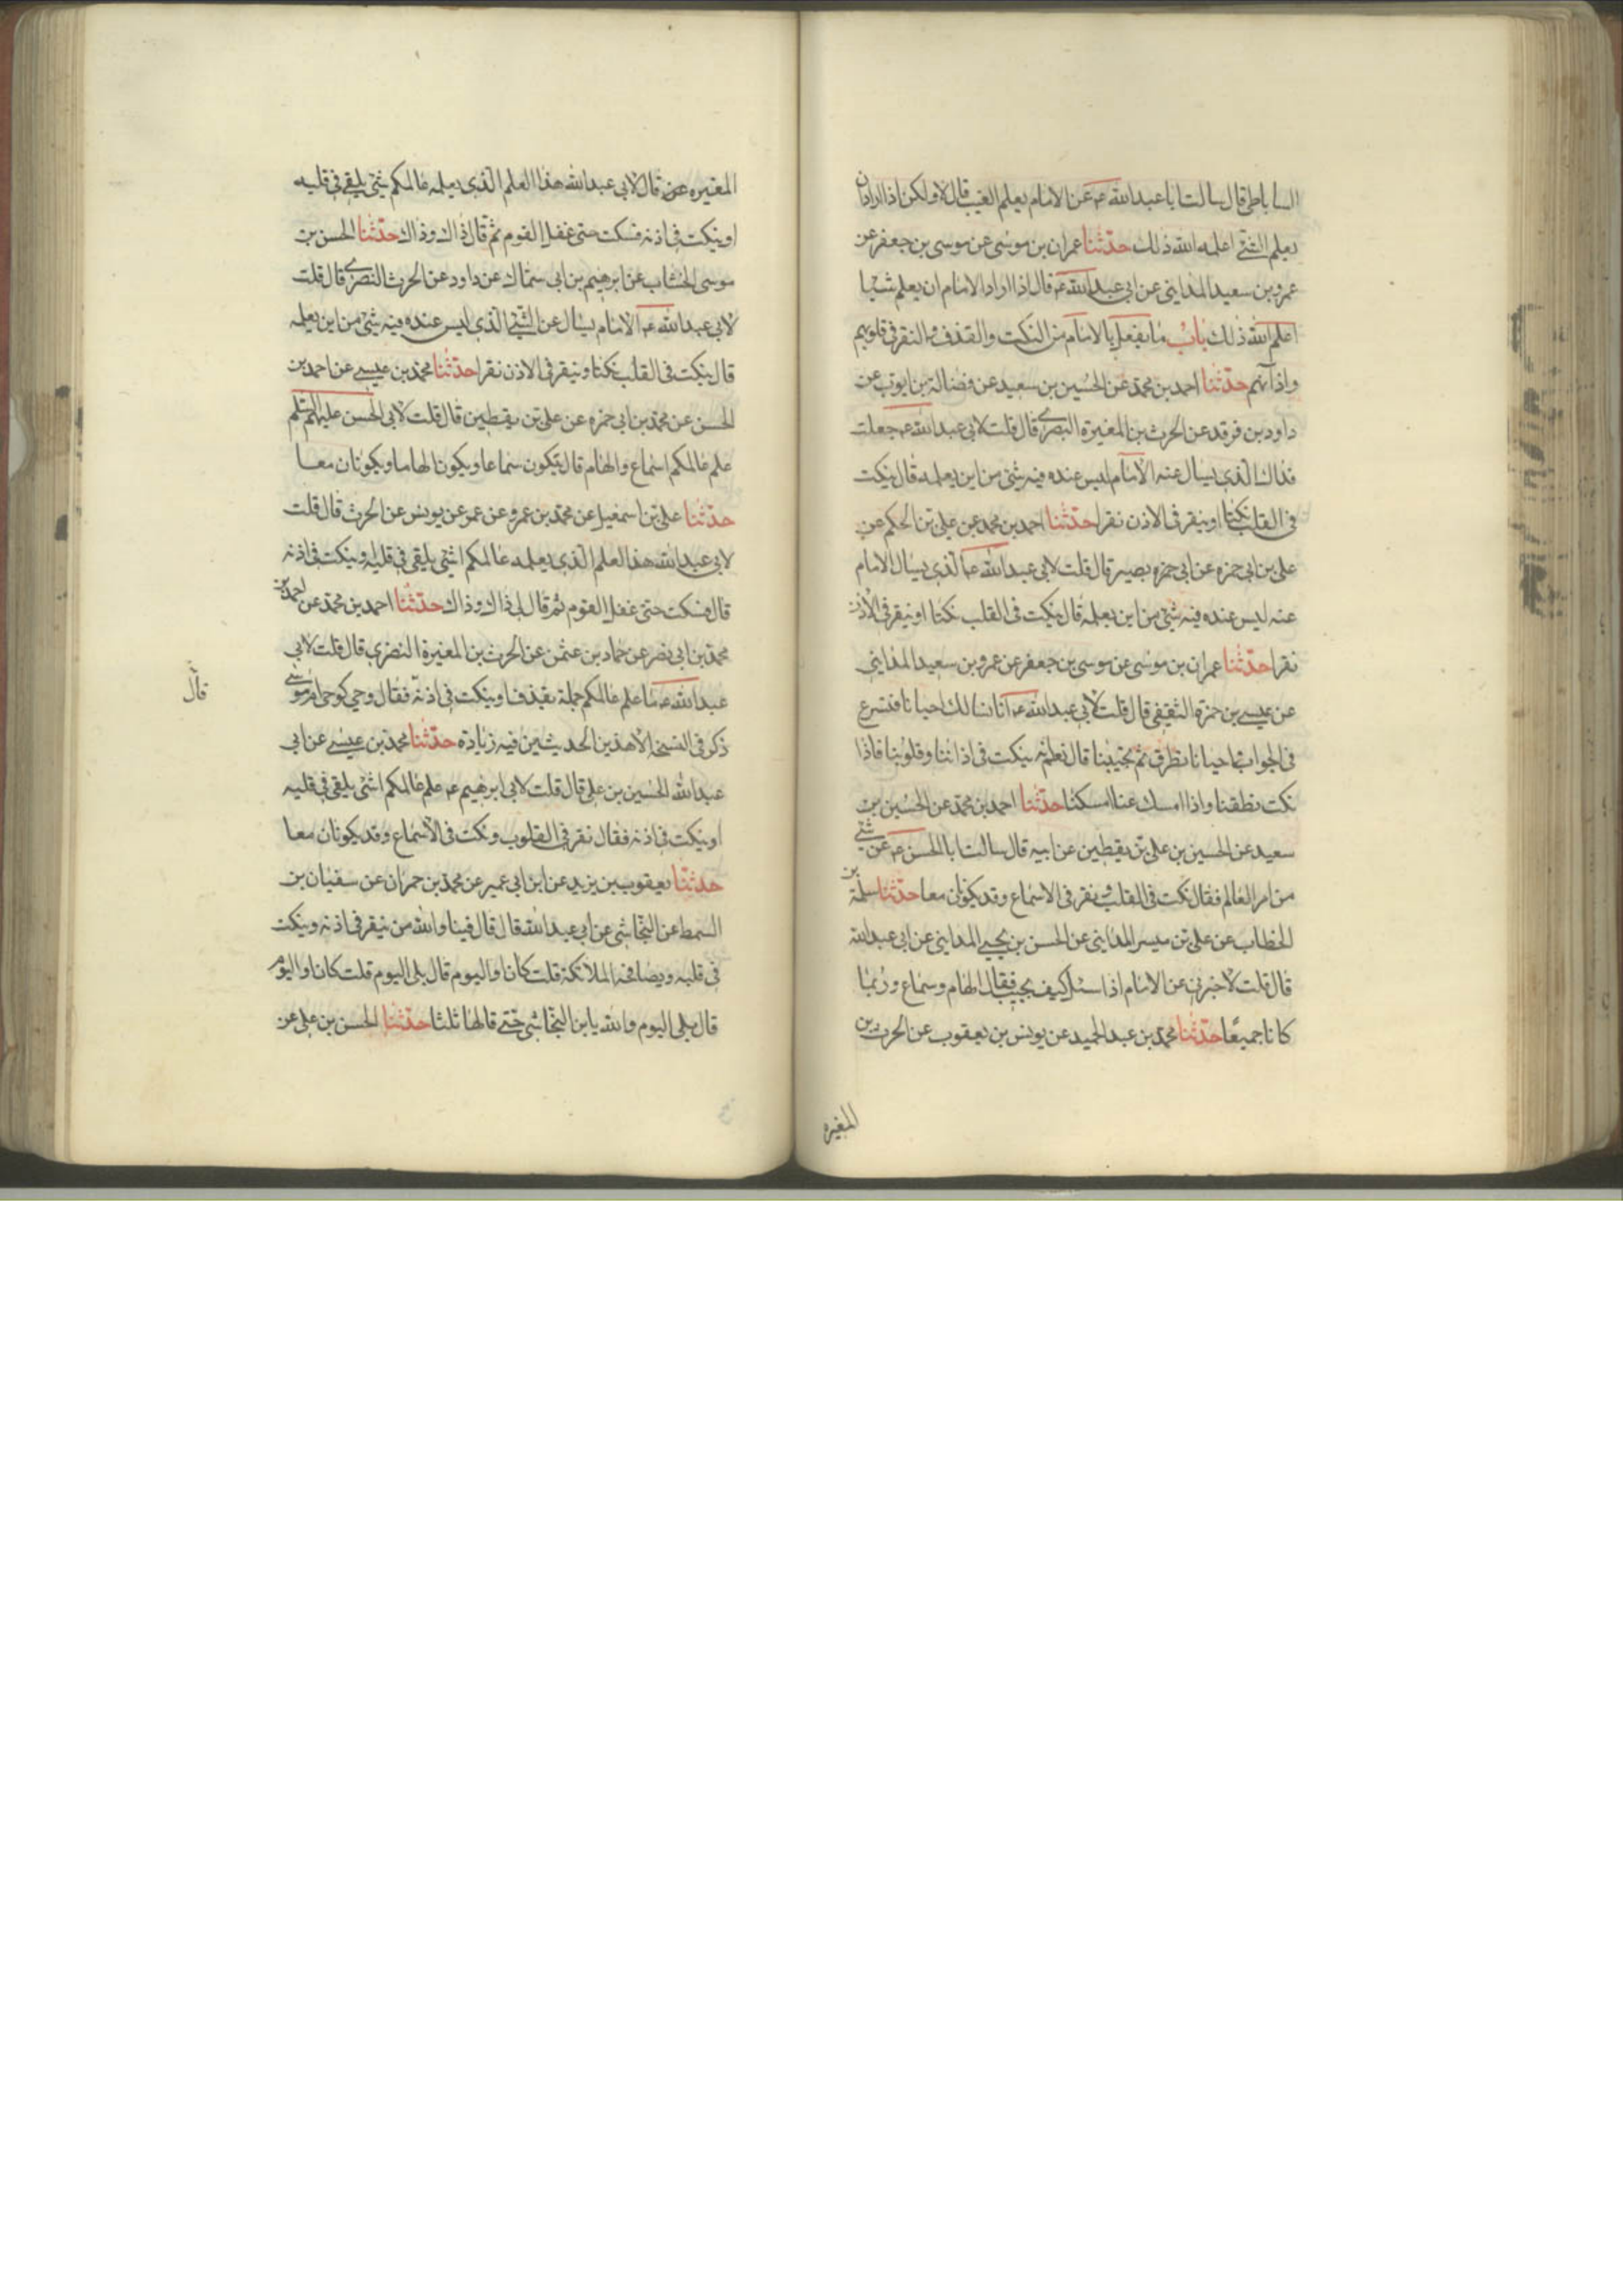 الساباطی قال سالت ابا عبد الله عه عن الامام یعلم الغیب قال لا ولکن اذا اراد ان
یعلم الشئ اعلمه الله ذلك حدّثنا عمران بن موسی عن موسی بن جعفر عن
عمرو بن سعید المداینی عن ابی عبد الله عه قال اذا اراد الامام ان یعلم شیئا
اعلم الله ذلك باب ما یفعل بالامام من النکت والقذف والنقر فی قلوبهم
واذانهم حدّثنا احمد بن محمد عن الحسین بن سعید عن فضالة بن ایوب عن
داود بن فرقد عن الحرث بن المغیرة النصری قال قلت لابی عبد الله عه جعلت
فداك الذی یسال عنه الامام لیس عنده فیه شئ من این یعلمه قال ینکت
فی القلب نکتا او ینقر فی الاذن نقرا حدّثنا احمد بن محمد عن علی بن الحکم عن
علی بن ابی حمزه عن ابی حمزه بصیر قال قلت لابی عبد الله عه الذی یسال الامام
عنه لیس عنده فیه شئ من این یعلمه قال ینکت فی القلب نکتا او ینقر فی الاذن
نقرا حدّثنا عمران بن موسی عن موسی بن جعفر عن عمرو بن سعید المداینی
عن عیسی بن حمزة الثقفی قال قلت لابی عبد الله عه انا نسالك احیانا فتسرع
فی الجواب واحیانا تطرق ثم تجیبنا قال نعم انه ینکت فی اذاننا وقلوبنا فاذا
نکت نطقنا واذا امسك عنا امسکنا حدّثنا احمد بن محمد عن الحسین بن
سعید عن الحسین بن علی بن یقطین عن ابیه قال سالت ابا الحسن عه عن شئ
من امر العالم فقال نکت فی القلب ونقر فی الاسماع وقد یکونان معا حدّثنا سلمة بن
الخطاب عن علی بن میسر المداینی عن الحسن بن یحیی المداینی عن ابی عبد الله
قال قلت لا خبرنی عن الامام اذا سئل کیف یجیب فقال الهام وسماع وربما
کانا جمیعا حدّثنا محمد بن عبد الحمید عن یونس بن یعقوب عن الحرث بن
المغیره
المغیره عن قال لابی عبد الله هذا العلم الذی یعلمه عالمکم شئ یلقی فی قلبه
او ینکت فی اذنه فسکت حتی غفل القوم ثم قال ذاك وذاك حدّثنا الحسن بن
موسی الخشاب عن ابرهیم بن ابی سماك عن داود عن الحرث النصری قال قلت
لابی عبد الله عه الامام یسال عن الشئ الذی لیس عنده فیه شئ من این یعلمه
قال ینکت فی القلب نکتا وینقر فی الاذن نقرا حدّثنا محمد بن عیسی عن احمد بن
الحسن عن محمد بن ابی حمزه عن علی بن یقطین قال قلت لابی الحسن علیه السلم
علم عالمکم اسماع والهام قال یکون سماعا ویکون الهاما ویکونان معا
حدّثنا علی بن اسمعیل عن محمد بن عمرو عن عمو عن یونس عن الحرث قال قلت
لابی عبد الله هذا العلم الذی یعلمه عالمکم اشئ یلقی فی قلبه او ینکت فی اذنه
قال فسکت حتی غفل القوم ثم قال لی ذاك وذاك حدّثنا احمد بن محمد عن احمد بن
محمد بن ابی نصر عن حماد بن عثمن عن الحرث بن المغیرة النضری قال قلت لابی
عبد الله عه ما علم عالمکم جملة یقذف او ینکت فی اذنه فقال وحی کوحی ام موسی
قال
ذکر فی النسخه الا هذین الحدیثین فیه زیادة حدّثنا محمد بن عیسی عن ابی
عبد الله الحسین بن علی قال قلت لابی ابرهیم عه علم عالمکم اشئ یلقی فی قلبه
او ینکت فی اذنه فقال نقر فی القلوب ونکت فی الاسماع وقد یکونان معا
حدّثنا یعقوب بن یزید عن ابن ابی عمیر عن محمد بن حمران عن سفیان بن
السمط عن النجاشی عن ابی عبد الله قال قال فینا والله من ینقر فی اذنه وینکت
فی قلبه ویصافحه الملائکة قلت کان او الیوم قال بلی الیوم قلت کان او الیوم
قال بلی الیوم والله یا بن النجاشی حتی قالها ثلثا حدّثنا الحسن بن علی عن